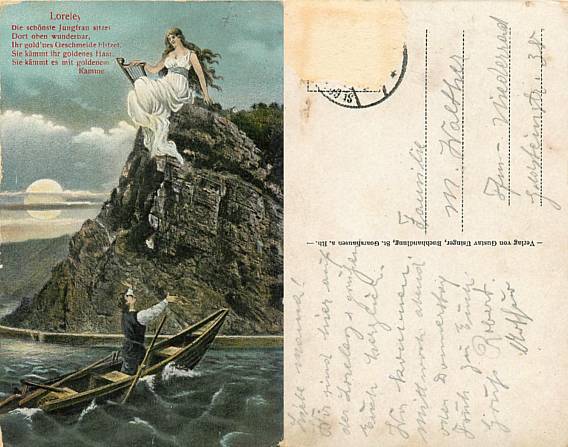 Loreley
Die schönste Jungfrau sitzet
Dort oben wunderbar,
Ihr gold'nes Geschmeide blitzet,
Sie kämmt ihr goldenes Haar.
Sie kämmt es mit goldenem
Kamme
Familie
M. Walther
Ffm-Niederrad
— Verlag von Gustav Usinger, Buchhandlung, St. Goarshausen a. Rh. —
Liebe Mama!
Wir sind hier auf
der Loreley u grüßen
Euch herzlich.
Wir kommen
Mittwoch abend
oder Donnerstag
früh zu Euch.
Gruß Robert